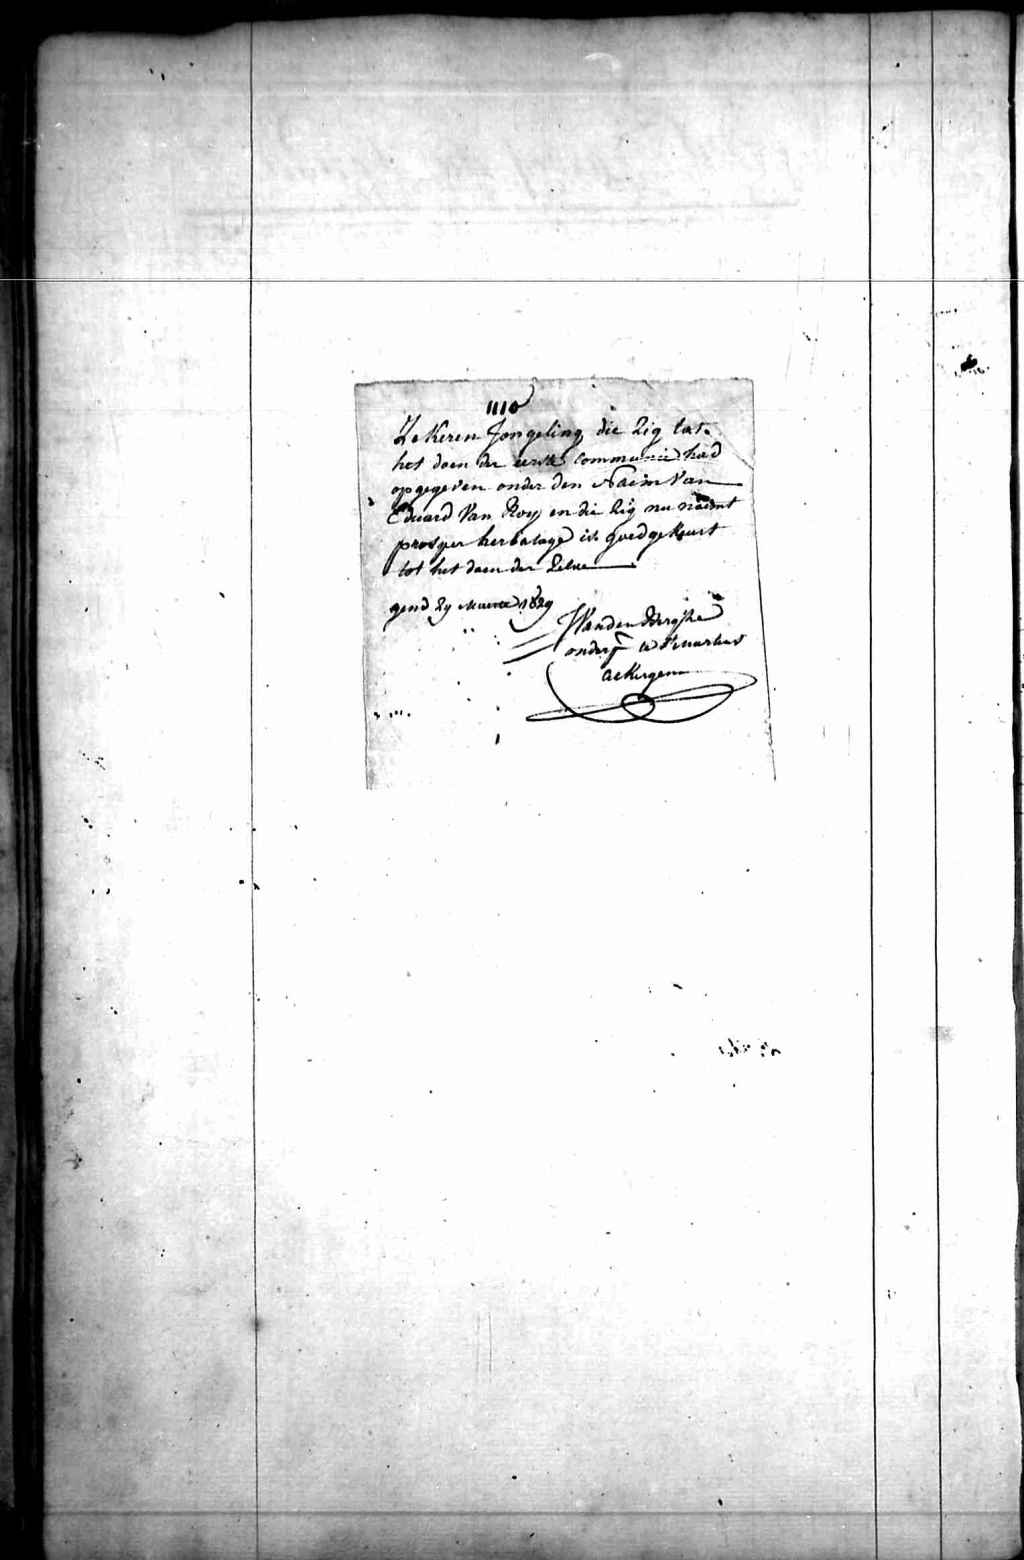 1110
Zekeren Jongeling die Zig tot
het doen der eerste communie had
opgegeven onder den Naem Van
Eduard Van Roy en die Zig nu noemt
prosper herbatage is goedgekeurt
tot het doen der Zelve
gend 29 Maerte 1829
J Vanden Berghe
onderp St Martens
aekergem